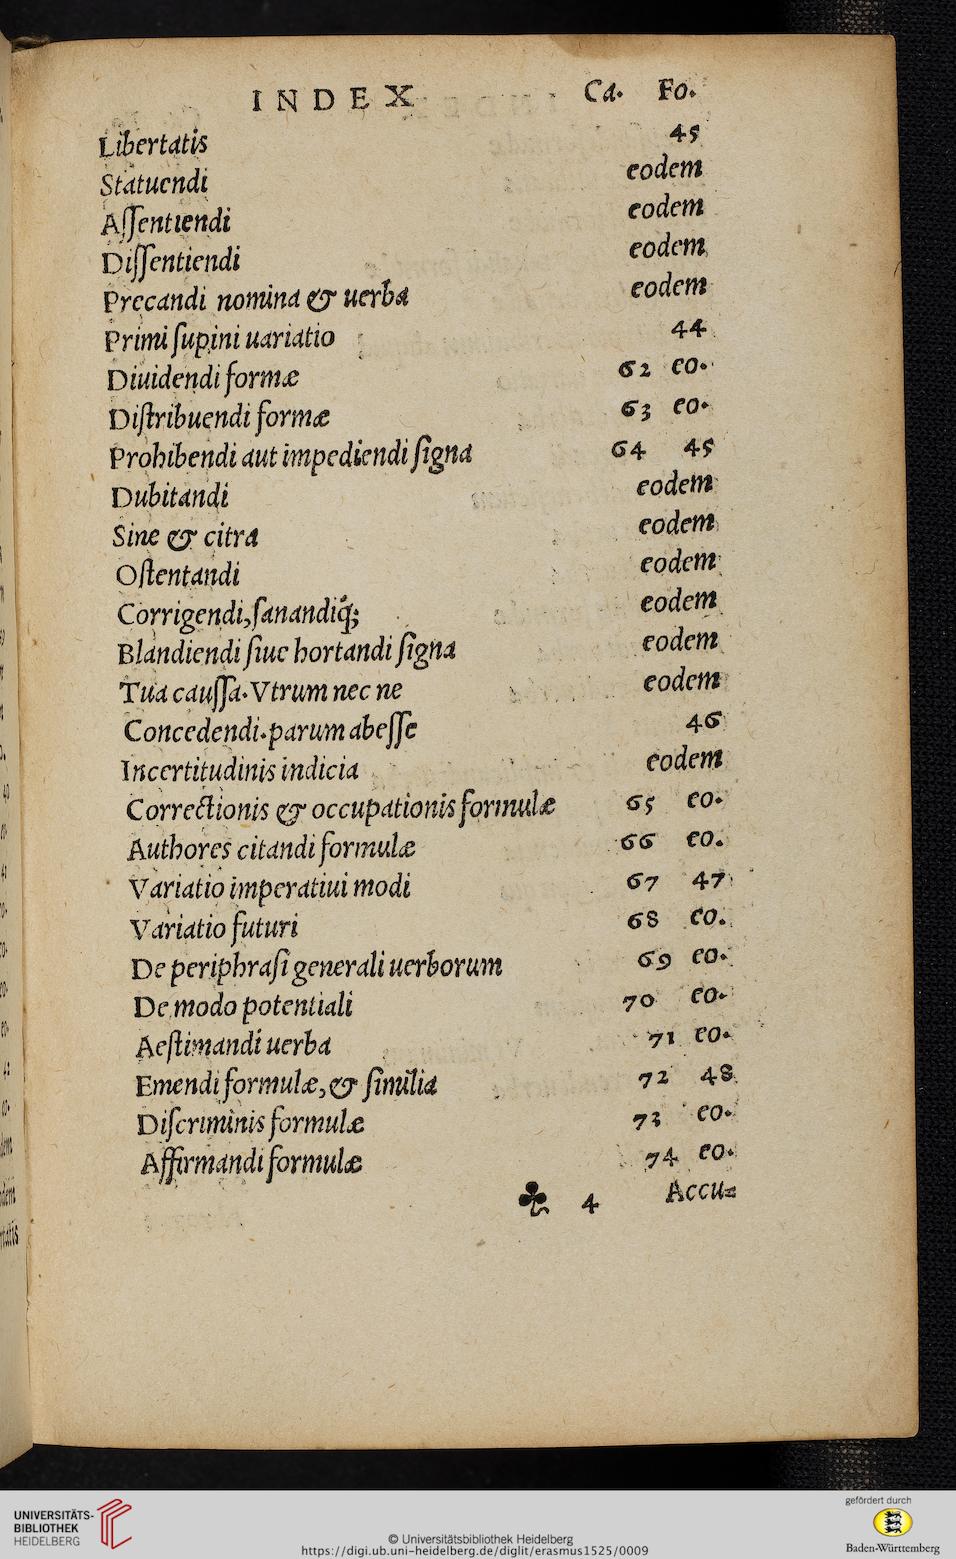 INDEX Ca. Fo.
Libertatis 45
Statuendi eodem
Aſſentiendi eodem
Diſſentiendi eodem
Precandi nomina & uerba eodem
Primi ſupini uariatio 44
Diuidendi formæ 62 eo.
Diſtribuendi formæ 63 eo.
Prohibendi aut impediendi ſigna 64 45
Dubitandi eodem
Sine & citra eodem
Oſtentandi eodem
Corrigendi,ſanandiq́; eodem
Blandiendi ſiue hortandi ſigna eodem
Tua cauſſa.Vtrum nec ne eodem
Concedendi.parum abeſſe 46
Incertitudinis indicia eodem
Correctionis & occupationis formulæ 65 eo.
Authores citandi formulæ 66 eo.
Variatio imperatiui modi 67 47
Variatio futuri 68 eo.
De periphraſi generali uerborum 69 eo.
De modo potentiali 70 eo.
Aeſtimandi uerba 71 eo.
Emendi formulæ,& ſimilia 72 48
Diſcriminis formulæ 73 eo.
Affirmandi formulæ 74 eo.
♣ 4 Accu=
UNIVERSITÄTS-
BIBLIOTHEK
HEIDELBERG
© Universitätsbibliothek Heidelberg
https://digi.ub.uni-heidelberg.de/diglit/erasmus1525/0009
gefördert durch
Baden-Württemberg